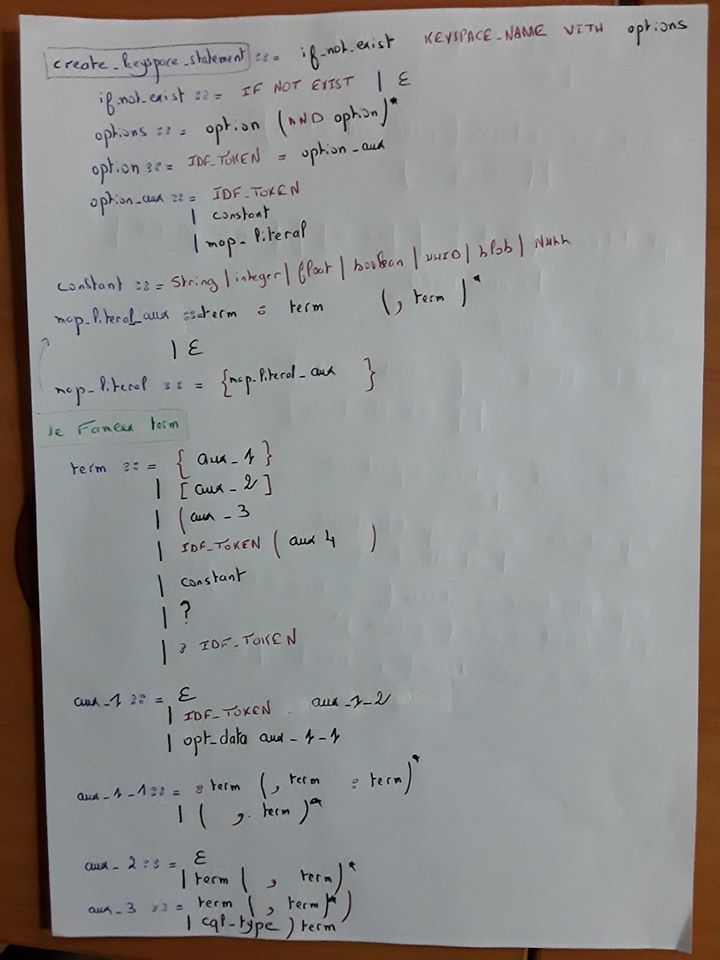 create_keyspace_statement ::= if_not_exist KEYSPACE_NAME WITH options
if_not_exist ::= IF NOT EXIST | ε
options ::= option (AND option)*
option ::= IDF_TOKEN = option_aux
option_aux ::= IDF_TOKEN
| constant
| map_literal
constant ::= String | integer | float | boolean | UUID | blob | NULL
map_literal_aux ::= term : term (, term)*
| ε
map_literal ::= {map_literal_aux }
le Fameux term
term ::= { aux_1 }
| [ aux_2 ]
| (aux_3
| IDF_TOKEN ( aux 4 )
| constant
| ?
| : IDF_TOKEN
aux_1 ::= ε
| IDF_TOKEN . aux_1_2
| opt_data aux_1_1
aux_1_1 ::= : term (, term : term)*
| ( , term )*
aux_2 ::= ε
| term ( , term)*
aux_3 ::= term ( , term)* )
| cql_type ) term